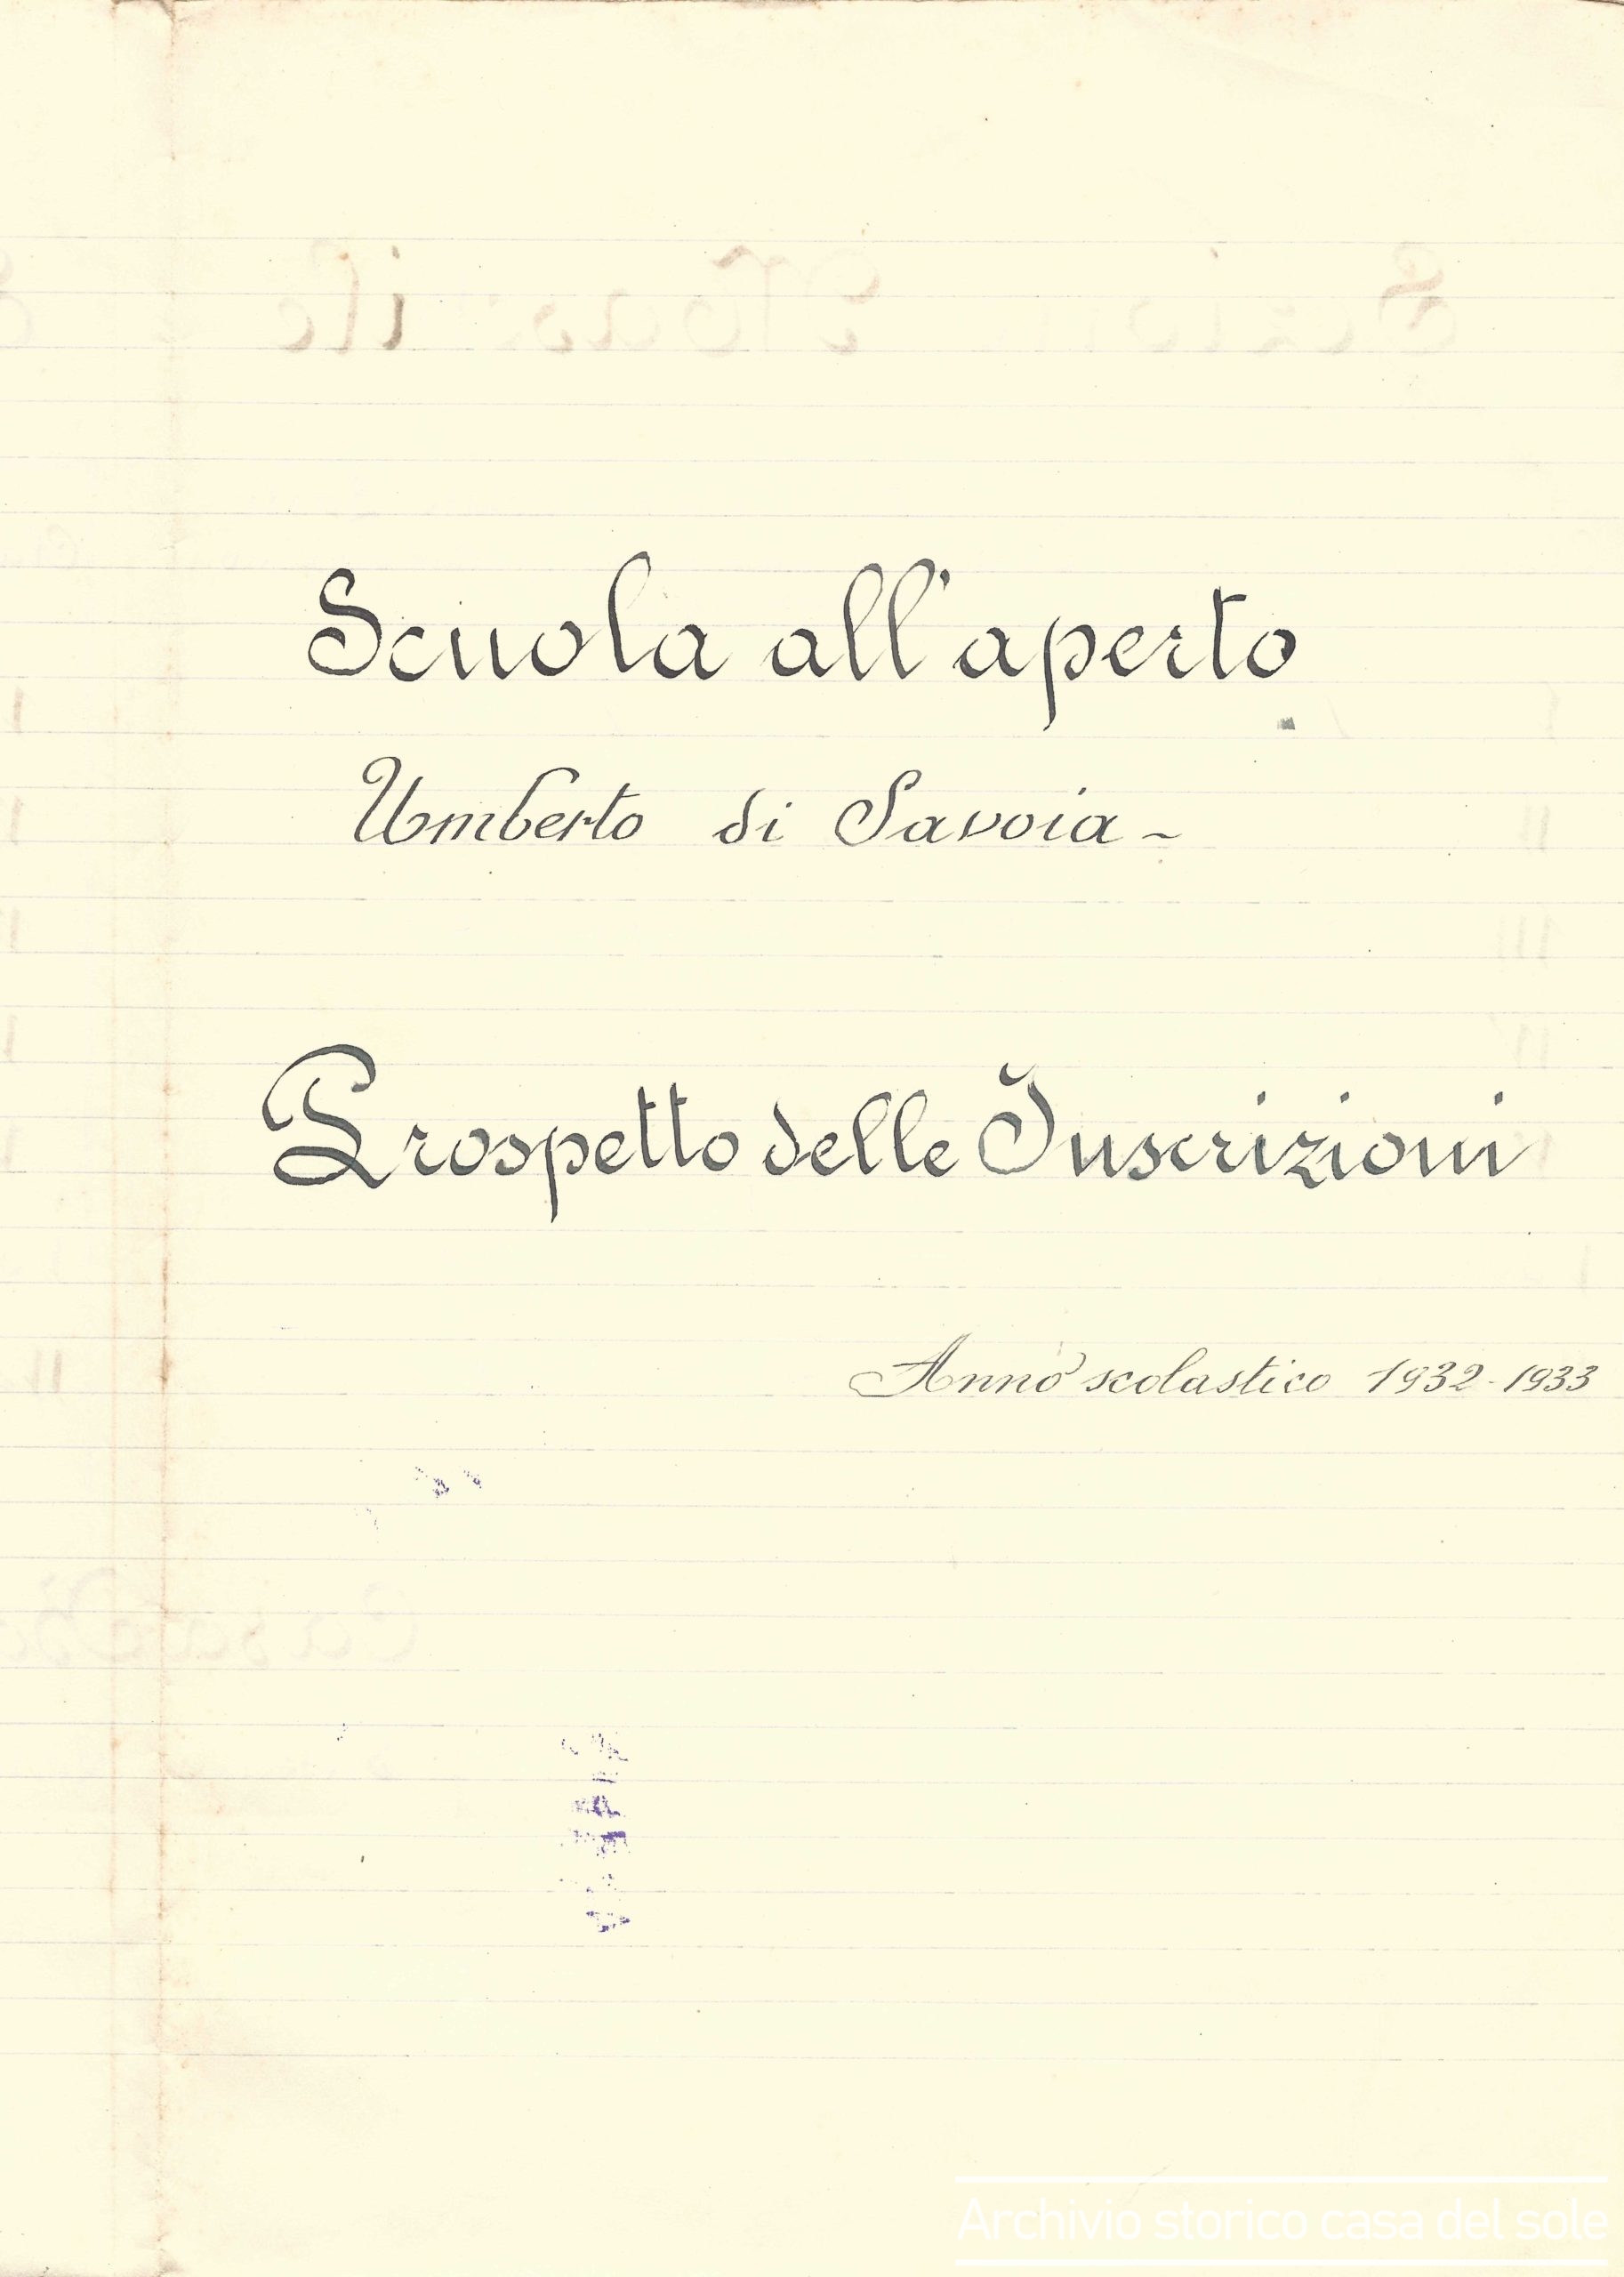 Scuola all'aperto
Umberto di Savoia -
Prospetto delle Inscrizioni
Anno scolastico 1932-1933
Archivio storico casa del sole